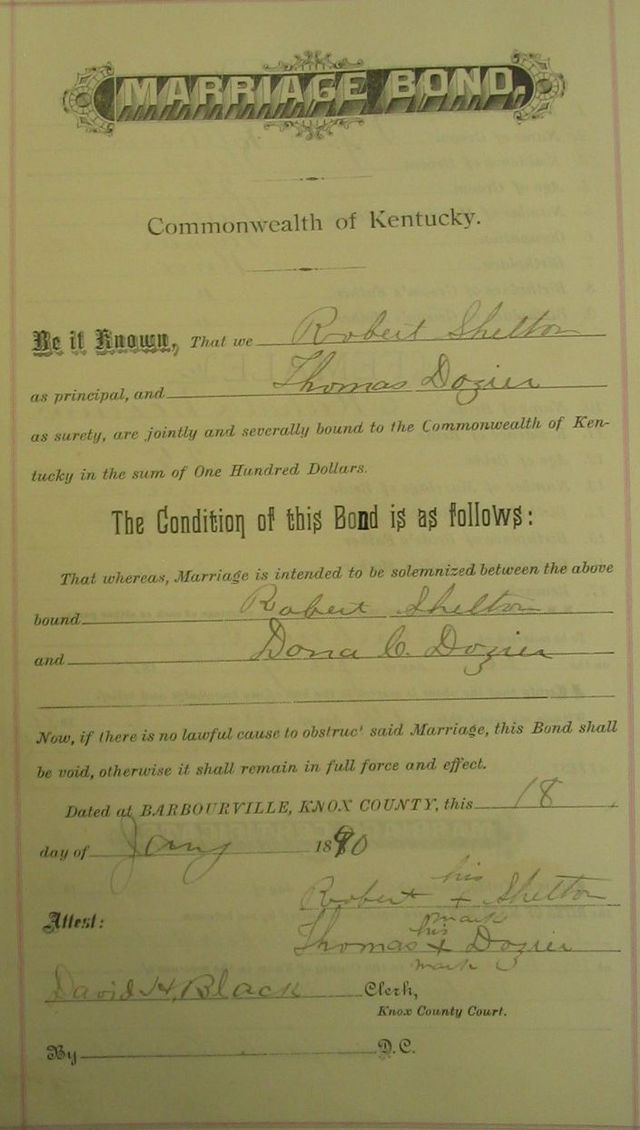 MARRIAGE BOND,
Commonwealth of Kentucky.
Be it Known, That we Robert Shelton
as principal, and Thomas Dozier
as surety, are jointly and severally bound to the Commonwealth of Ken-
tucky in the sum of One Hundred Dollars.
The Condition of this Bond is as follows:
That whereas, Marriage is intended to be solemnized between the above
bound Robert Shelton
and Dona C. Dozier
Now, if there is no lawful cause to obstruc' said Marriage, this Bond shall
be void, otherwise it shall remain in full force and effect.
Dated at BARBOURVILLE, KNOX COUNTY, this 18
day of Jany 1890
Robert his + mark Shelton
Attest:
Thomas his + mark Dozier
David H. Black Clerk,
Knox County Court.
By D.C.